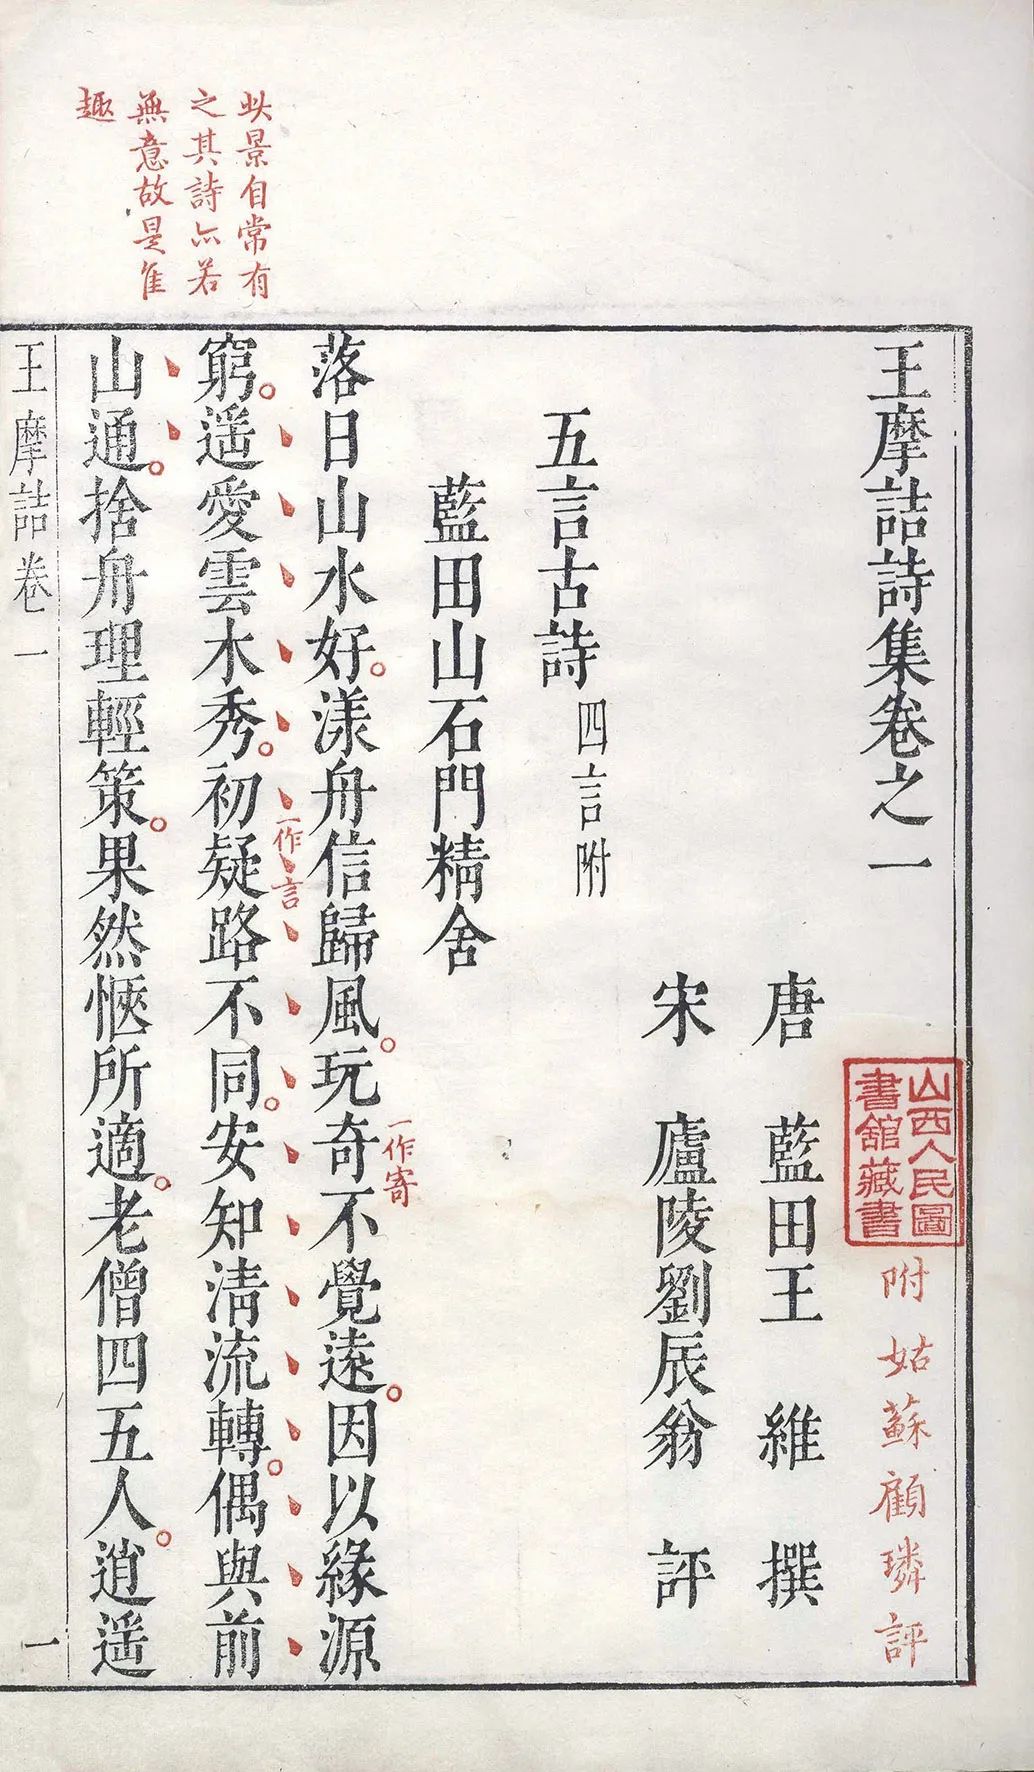 王摩詰詩集卷之一
附姑蘇顧璘評
山西人民圖
書館藏書
唐 藍田王 維 撰
宋 廬陵劉辰翁 評
五言古詩 四言附
藍田山石門精舍
落日山水好漾舟信歸風玩奇不覺遠因以緣源
一作寄
窮遥愛雲木秀初疑路不同安知清流轉偶與前
一作言
山通捨舟理輕策果然愜所適老僧四五人逍遥
此景自常有
之其詩亦若
無意故是佳
趣
王摩詰卷一
一